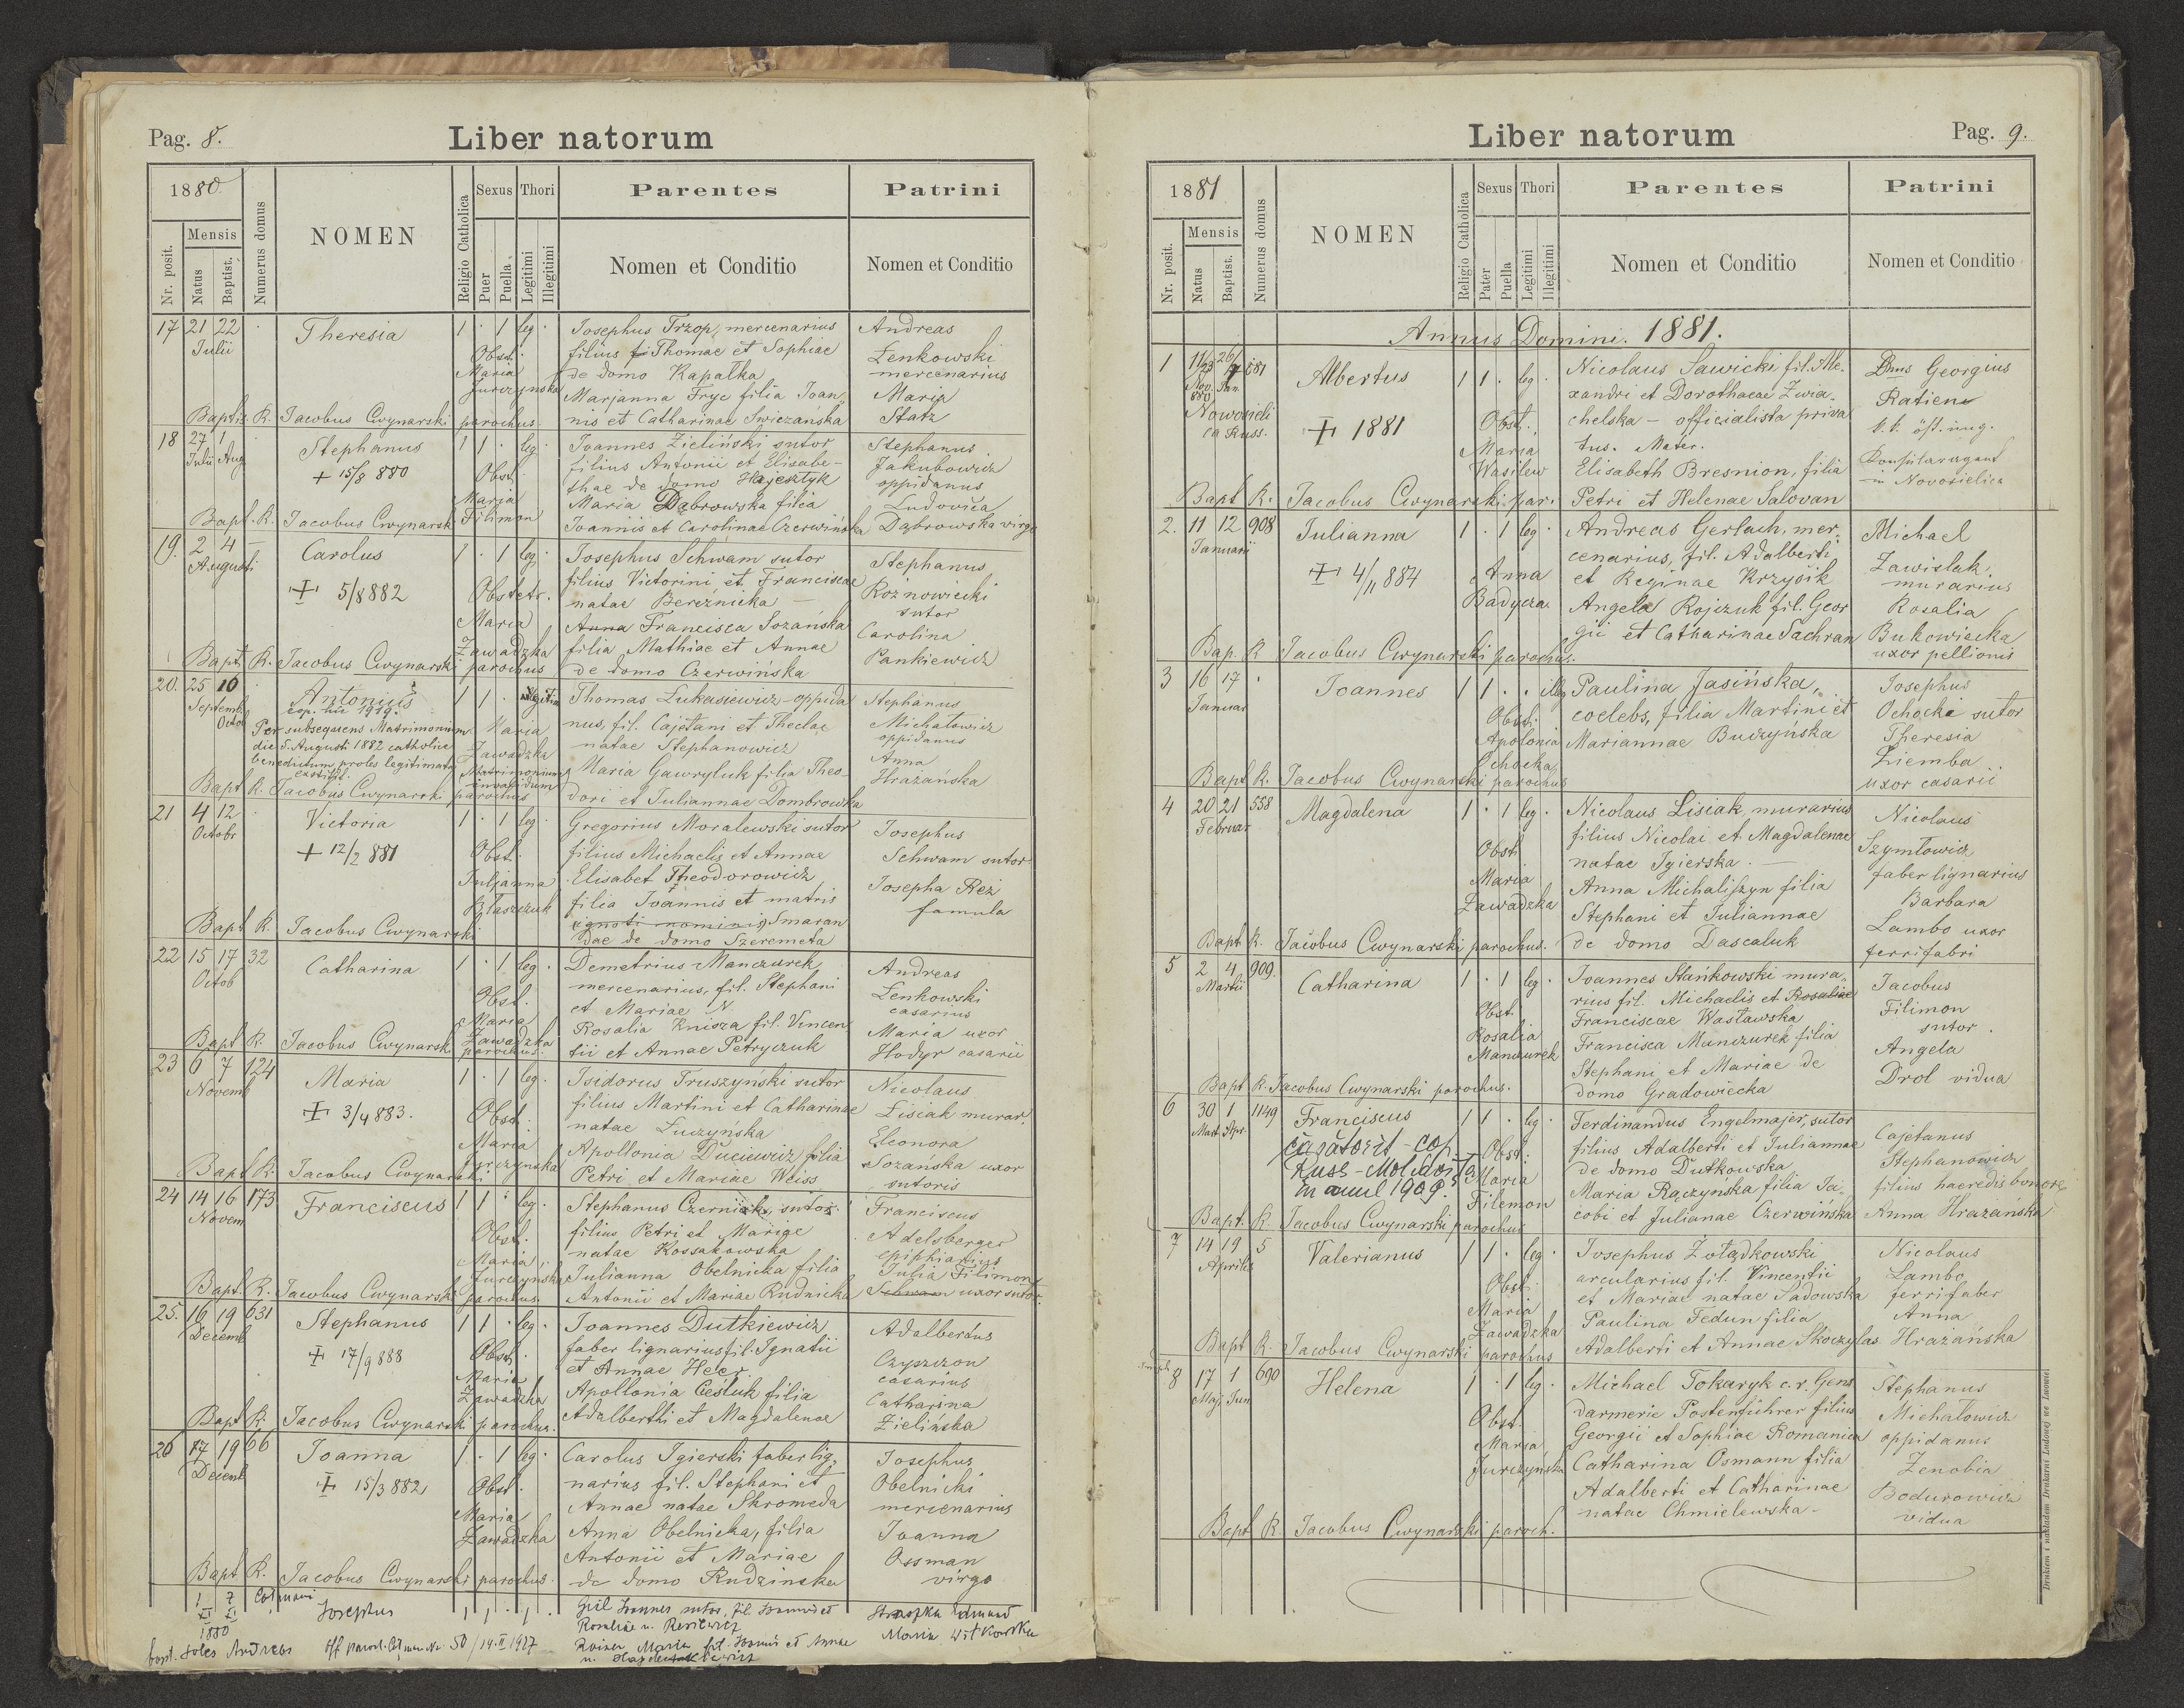 Pag. 8.
Liber natorum
1880.
Nr. posit.
Mensis
Natus
Baptist.
Numerus domus
NOMEN
Religio Catholica
Sexus
Puer
Puella
Thori
Legitimi
Illegitimi
Parentes
Nomen et Conditio
Patrini
Nomen et Conditio
17 21 22 Theresia 1 · 1 leg · Josephus Trzop, mercenarius Andreas
Julii Obst. filius Thomae et Sophiae Lenkowski
Maria de domo Kapałka mercenarius
Jurczynska Marjanna Fryc filia Joan Maria
Bapt. R. Jacobus Cwynarski parochus. nis et Catharinae Swiczańska Statz
18 27 1 Stephanus 1 1 · leg Joannes Zieliński sutor Stephanus
Julii Aug filius Antonii et Elisabe- Jakubowicz
+ 15/8 880 Obst. thae de domo Hajesztyk oppidanus
Maria Maria Dąbrowska filia Ludovica
Bapt. R. Jacobus Cwynarski Filimon Joannis et Carolinae Czerwińska Dąbrowska virgo
19. 2 4 Carolus 1 · 1 leg · Josephus Schwam sutor Stephanus
Augusti filius Victorini et Franciscae Rożnowiecki
+ 5/8 882 Obstetr. natae Bereźnicka — sutor
Maria Anna Francisca Sozańska Carolina
Zawadzka filia Mathiae et Annae Pankiewicz
Bapt R. Jacobus Cwynarski parochus de domo Czerwińska
20. 25 10 Antonius 1 1 · Thomas Łukasiewicz oppida Stephanus
Septemb Octob cop. hic 1919. nus, fil. Cajetani et Theclae Michałowicz
Per subsequens Matrimonium Maria natae Stephanowicz oppidanus
die 5. Augusti 1882 catholice Zawadzka Anna
benedictum proles legitimata Matrimonium Maria Gawryluk filia Theo- Hrazańska
exstitit. invalidum
Bapt R. Jacobus Cwynarski parochus dori et Juliannae Dombrowka
21 4 12 Victoria 1 · 1 leg · Gregorius Moralewski sutor Josephus
Octobr filius Michaelis et Annae Schwam sutor
+ 12/2 881 Obst. Elisabet Theodorowicz Josepha Reż
Juljanna filia Joannis et matris famula
Kłaszczuk ignoti nominis Smaran
Bapt R. Jacobus Cwynarski dae de domo Szeremeta
22 15 17 32 Catharina 1 · 1 leg · Demetrius Manczurek Andreas
Octob mercenarius, fil. Stephani Lenkowski
Obst. et Mariae N. casarius
Maria Rosalia Knisza fil. Vincen Maria uxor
Bapt R. Jacobus Cwynarski Zawadzka parochus. tii et Annae Petryczuk Hodyr casarii
23 6 7 124 Maria 1 · 1 leg · Isidorus Truszyński sutor Nicolaus
Novemb filius Martini et Catharinae Lisiak murar.
+ 3/4 883. Obst. natae Łuczyńska Eleonora
Maria Apollonia Duciewicz filia Sozańska uxor
Bapt R. Jacobus Cwynarski Jurczynska Petri et Mariae Weiss sutoris
24 14 16 173 Franciscus 1 1 · leg · Stephanus Czerniak, sutor. Franciscus
Novem filius Petri et Mariae Adelsberger
Obst. natae Kossakowska epiphiarius
Maria Julianna Obelnicka filia Julia Filimon
Bapt. R. Jacobus Cwynarski Jurczynska parochus. Antonii et Mariae Rudnicka Schwam uxor sutor.
25. 16 19 631 Stephanus 1 1 · leg · Joannes Dutkiewicz Adalbertus
Decemb faber lignarius fil. Ignatii Czyszczon
+ 17/9 888 Obst. et Annae Heer. casarius
Maria Apollonia Cieśluk filia Catharina
Zawadzka Adalberthi et Magdalenae Zielińska
Bapt R. Jacobus Cwynarski parochus.
26 17 19 66 Joanna 1 · 1 leg · Carolus Igierski faber lig- Josephus
Decemb narius fil. Stephani et Obelnicki
+ 15/3 882 Obst. Annae natae Skromeda mercenarius
Maria Anna Obelnicka, filia Joanna
Zawadzka Antonii et Mariae Ossman
Bapt R. Jacobus Cwynarski parochus. de domo Rudzinska virgo
1 7 Cotmani Josephus 1 1 · 1 · Joannes sutor, fil. Edmund
XI XI
1880 Maria Witkowska
bapt. Andreas Off. paroch. Nr. 50/14.II 1927 Maria fil. et Annae
Pag. 9.
Liber natorum
1881
Nr. posit.
Mensis
Natus
Baptist.
Numerus domus
NOMEN
Religio Catholica
Sexus
Pater
Puella
Thori
Legitimi
Illegitimi
Parentes
Nomen et Conditio
Patrini
Nomen et Conditio
Annus Domini. 1881.
1 11/23 26/7 881 Albertus 1 1 · leg · Nicolaus Sawicki fil. Ale- Dnus Georgius
Nov. Jan. 880 xandri et Dorothaeae Zwia- Ratien
Nowosieli ca Russ. + 1881 Obst. chelska — officialista priva k.k. öst. ung.
Maria tus. Mater. Konsularagent
Wasilew Elisabeth Bresnion, filia in Novosielica
Bapt R. Jacobus Cwynarski par. Petri et Helenae Salovan
2. 11 12 908 Julianna 1 · 1 leg · Andreas Gerlach, mer- Michael
Januarii cenarius, fil. Adalberti Zawislak
+ 4/11 884 Anna et Reginae Krzyśik murarius
Badycza Angela Rojczuk fil. Geor Rosalia
gii et Catharinae Sachran Bukowiecka
Bap. R Jacobus Cwynarski parochus. uxor pellionis
3 16 17 · Joannes 1 1 · · illeg Paulina Jasińska, Josephus
Januar coelebs, filia Martini et Ochocki sutor
Obst. Mariannae Buczyńska Theresia
Apolonia Ziemba
Ochocka
Bapt R. Jacobus Cwynarski parochus uxor casarii
4 20 21 558 Magdalena 1 · 1 leg · Nicolaus Lisiak, murarius Nicolaus
Februar filius Nicolai et Magdalenae Szymłowicz
Obst natae Igierska. — faber lignarius
Maria Anna Michaliszyn filia Barbara
Zawadzka Stephani et Juliannae Lambo uxor
Bapt R. Jacobus Cwynarski parochus. de domo Dascaluk ferrifabri
5 2 4 909. Catharina 1 · 1 leg · Joannes Stańkowski mura- Jacobus
Martii rius fil. Michaelis et Rosaliae Filimon
Obst. Franciscae Wasławska sutor.
Rosalia Francisca Manczurek filia Angela
Manczurek Stephani et Mariae de Drol vidua
Bapt R. Jacobus Cwynarski parochus. domo Gradowiecka
6 30 1 1149 Franciscus 1 1 · leg · Ferdinandus Engelmajer, sutor Cajetanus
Mart Apr. căsătorit - cop. Obst. filius Adalberti et Juliannae Stephanowicz
Russ-Moldovița Maria de domo Dutkowska filius haeredis bonor.
în anul 1909. Filemon Maria Rączyńska filia Ja- Anna Hrazańska
Bapt. R. Jacobus Cwynarski parochus cobi et Julianae Czerwińska
7 14 19 5 Valerianus 1 1 · leg · Josephus Żołądkowski Nicolaus
Aprilis arcularius fil. Vincentii Lambo
Obst. et Mariae natae Sadowska ferrifaber
Maria Paulina Fedun filia Anna
Bapt R. Jacobus Cwynarski Zawadzka parochus Adalberti et Annae Skoczylas Hrazańska
8 17 1 690 Helena 1 · 1 leg · Michael Tokaryk c.r. Gens Stephanus
Maj Jun darmerie Postenführer filius Michałowicz
Obst. Georgii et Sophiae Romanica oppidanus
Maria Catharina Osmann filia Zenobia
Jurczyńska Adalberti et Catharinae Bodurowicz
natae Chmielewska - vidua
Bapt R. Jacobus Cwynarski paroch.
Drukiem i nakładem Drukarni Ludowej we Lwowie